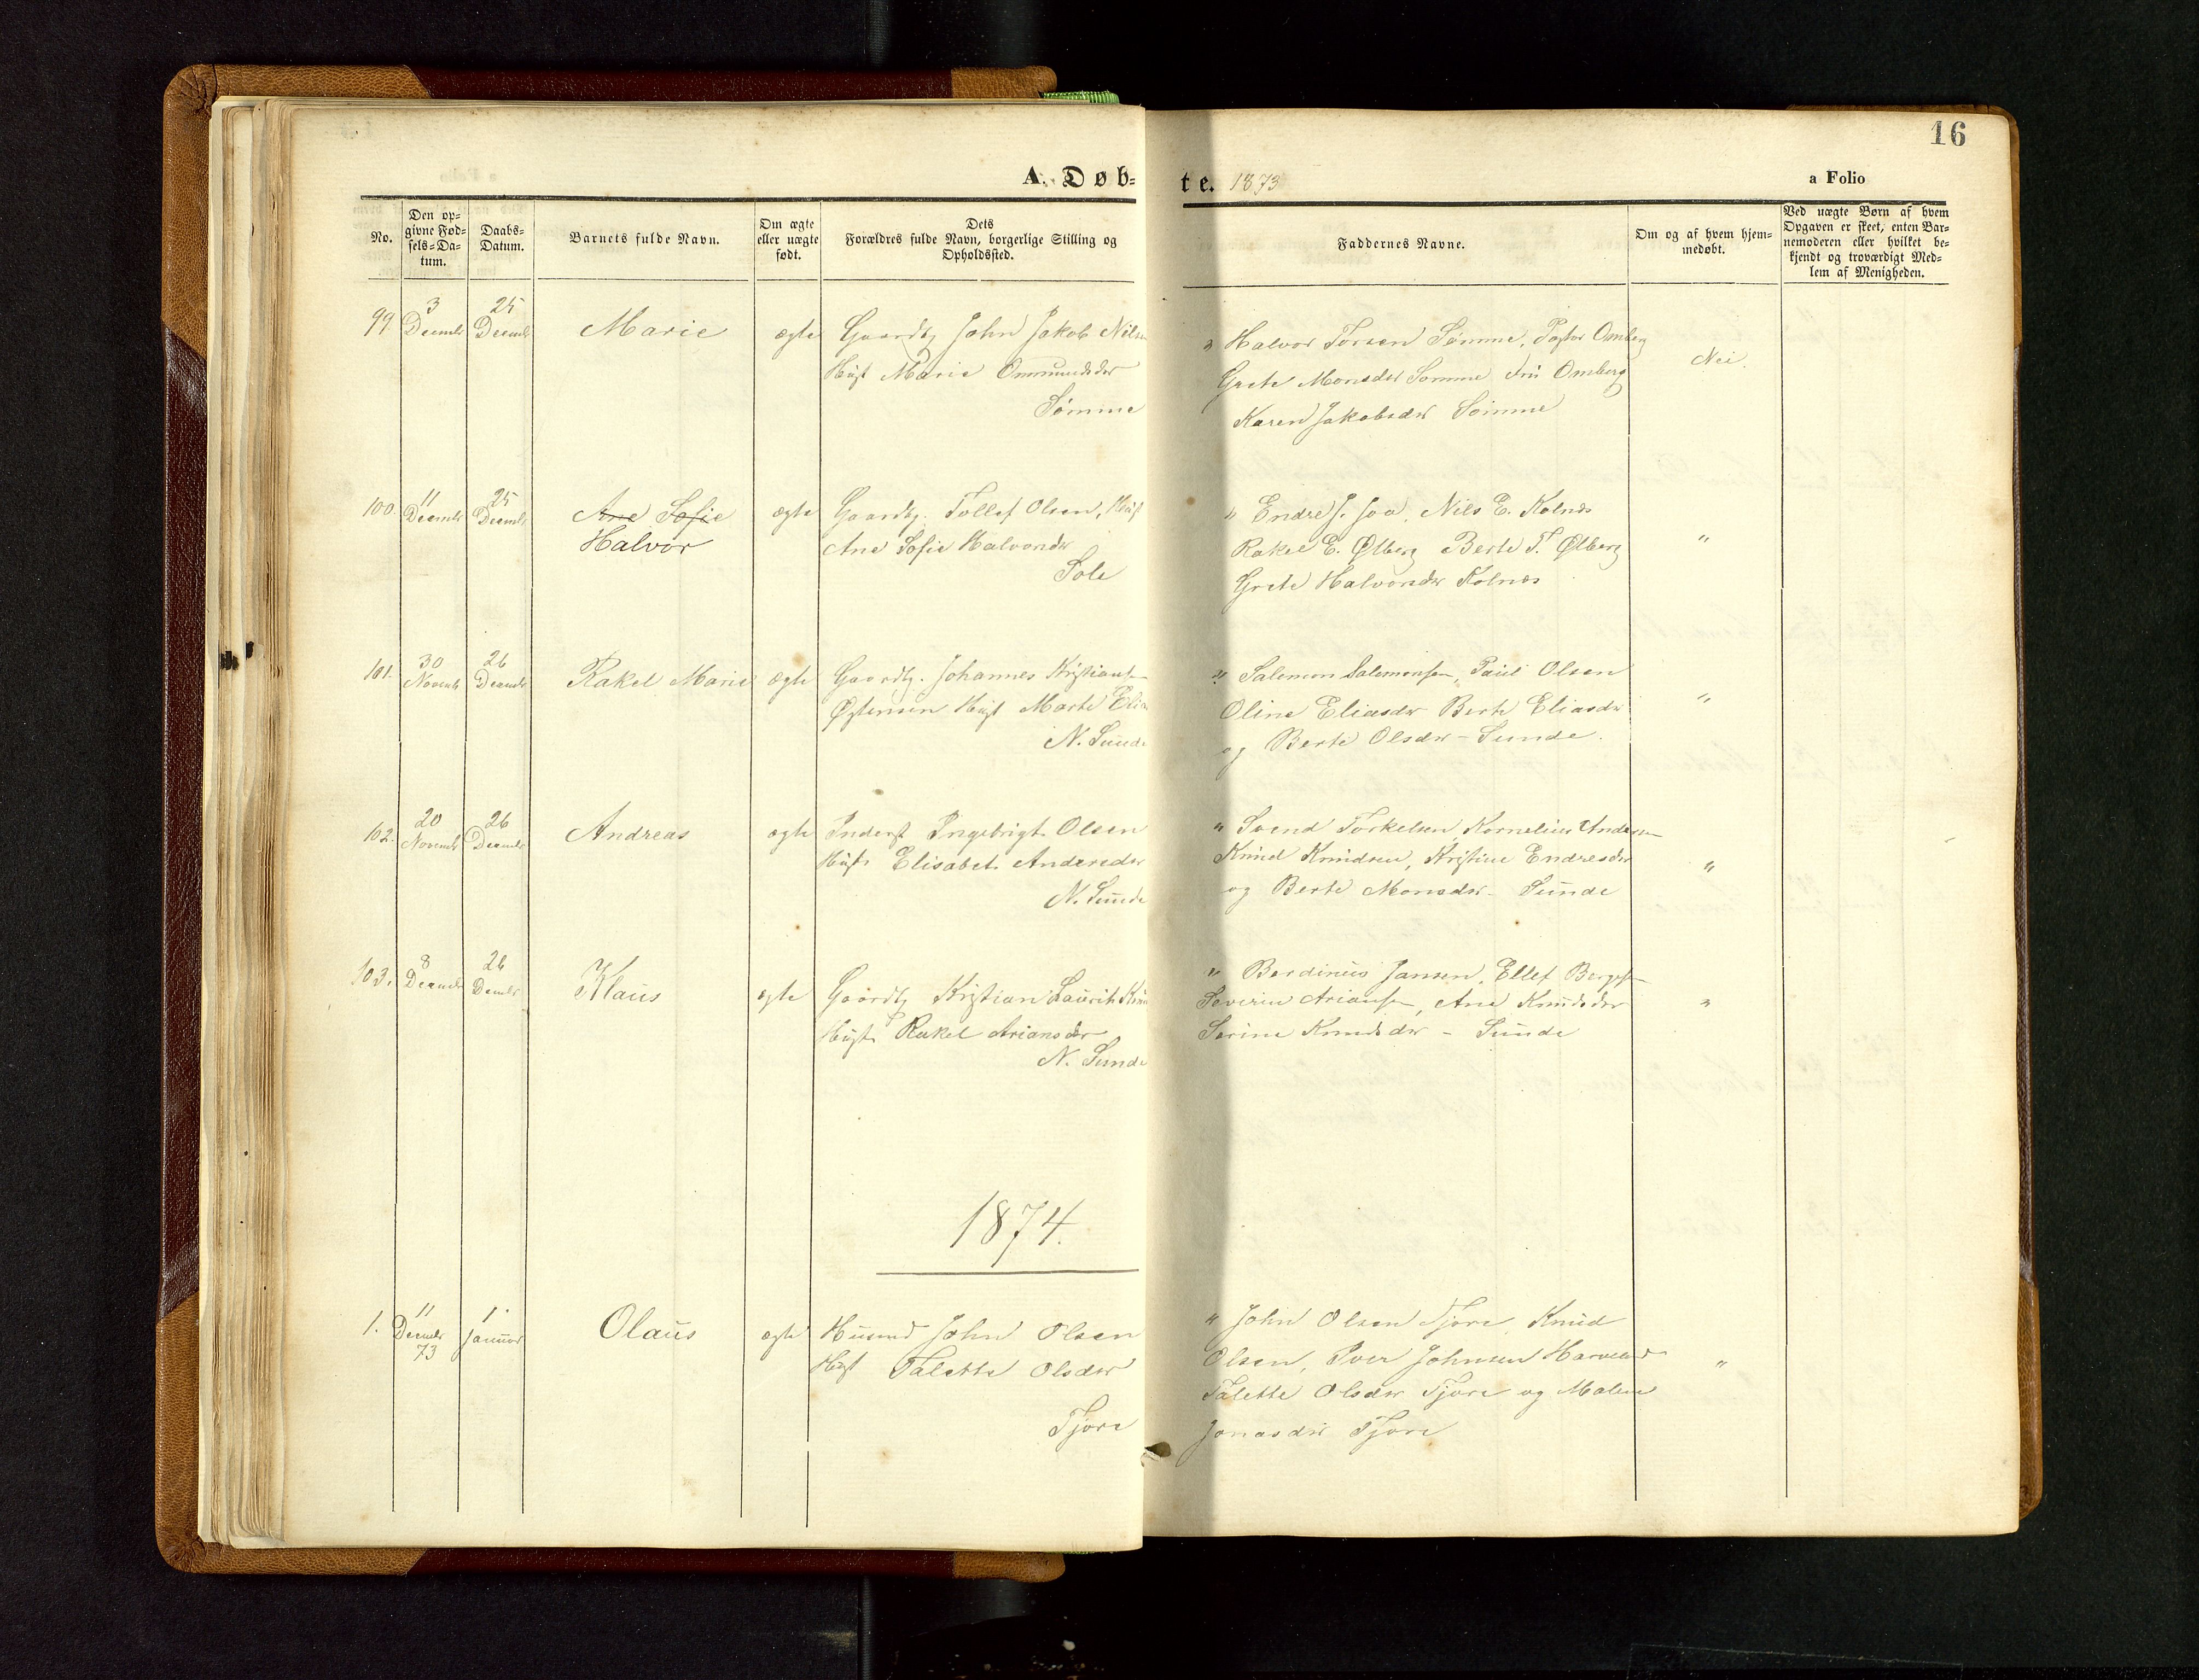 16
A. Døb-
te. 1873
a Folio
No.
Den op-
givne Fød-
sels-Da-
tum.
Daabs-
Datum.
Barnets fulde Navn.
Om ægte
eller uægte
født.
Dets
Forældres fulde Navn, borgerlige Stilling og
Opholdssted.
Faddernes Navne.
Om og af hvem hjem-
medøbt.
Ved uægte Børn af hvem
Opgaven er skeet, enten Bar-
nemoderen eller hvilket be-
kjendt og troværdigt Med-
lem af Menigheden.
99.
3
Decembr
25
Decembr
Marie
ægte
Gaardbr John Jakob Nilsen
Hust Marie Ommundsdr
Sømme
" Halvor Torsen Sømme, Pastor Omberg
Grete Monsdr Sømme Fru Omberg
Karen Jakobsdr Sømme
Nei.
100.
11
Decembr
25
Decembr
Ane Sofie
Halvor
ægte
Gaardbr. Tollef Olsen, Hust
Ane Sofie Halvorsdr
Sole
" Endre J. Joa, Nils E. Kolnes
Rakel E. Ølberg Berte T. Ølberg
Grete Halvorsdr Kolnes
"
101.
30
Novembr
26
Decembr
Rakel Marie
ægte
Gaardbr. Johannes Kristiansen
Østensen Hust Marte
N. Sunde
" Salemon Salemonsen, Paul Olsen
Oline Eliasdr Berte Eliasdr
og Berte Olsdr - Sunde.
"
102.
20
Novembr
26
Decembr
Andreas
ægte
Inderst Ingebrigt Olsen
Hust Elisabet Andersdr
N. Sunde
" Svend Torkelsen, Kornelius Andersen
Knud Knudsen, Kristine Endresdr
og Berte Monsdr - Sunde
"
103.
8
Decembr
26
Decembr
Klaus
ægte
Gaardbr Kristian Laurits
Hust Rakel Ariansdr
N. Sunde
" Berdinus Jansen, Ellef
Severin Ariansen, Ane Knudsdr
Serine Knudsdr - Sunde
"
1874.
1.
11
Decembr
73
1
Januar
Olaus
ægte
Husmd John Olsen
Hust Talette Olsdr
Tjore
" John Olsen Tjore, Knud
Olsen, Iver Johnsen
Talette Olsdr Tjore og Malene
Jonasdr Tjore
"